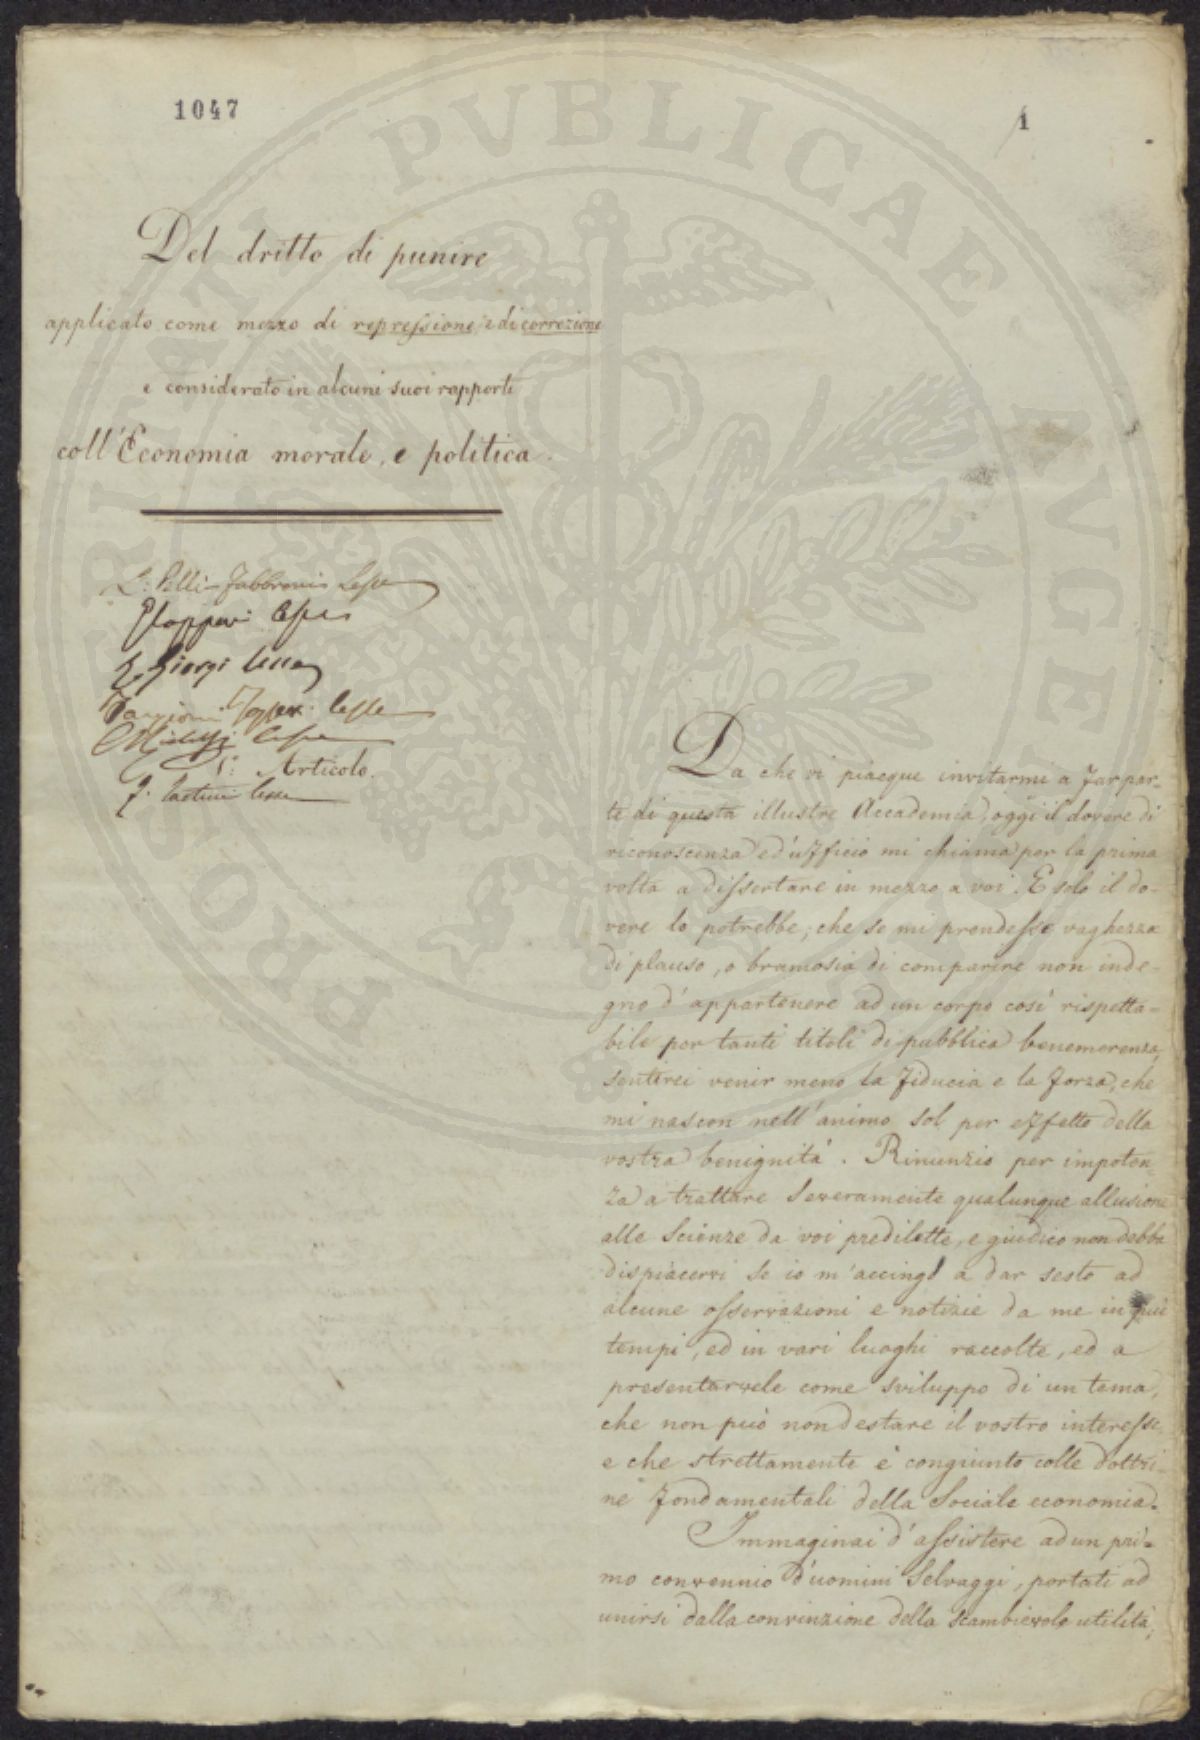 1047
1
Del dritto di punire
applicato come mezzo di repressione, e di correzione
e considerato in alcuni suoi rapporti
coll'Economia morale, e politica.
L: Pelli-Fabbroni
1.° Articolo.
Da che vi piacque invitarmi a far par-
te di questa illustre Accademia, oggi il dovere di
riconoscenza ed'ufficio mi chiama per la prima
volta a dissertare in mezzo a voi. E solo il do-
vere lo potrebbe; che se mi prendesse vaghezza
di plauso, o bramosia di comparire non inde-
gno d'appartenere ad un corpo così rispetta-
bile per tanti titoli di pubblica benemerenza,
sentirei venir meno la fiducia e la forza, che
mi nascon nell'animo sol per effetto della
vostra benignità. Rinunzio per impoten-
za a trattare severamente qualunque allusione
alle Scienze da voi predilette, e giudico non debba
dispiacervi se io m'accingo a dar sesto ad
alcune osservazioni e notizie da me in più
tempi, ed in vari luoghi raccolte, ed a
presentarvele come sviluppo di un tema,
che non può non destare il vostro interesse
e che strettamente è congiunto colle dottri-
ne fondamentali della Sociale economia.
Immaginai d'assistere ad un pri-
mo convennio d'uomini Selvaggi, portati ad
unirsi dalla convinzione della scambievole utilità,
PROSPERITATI PVBLICAE AVGENDAE